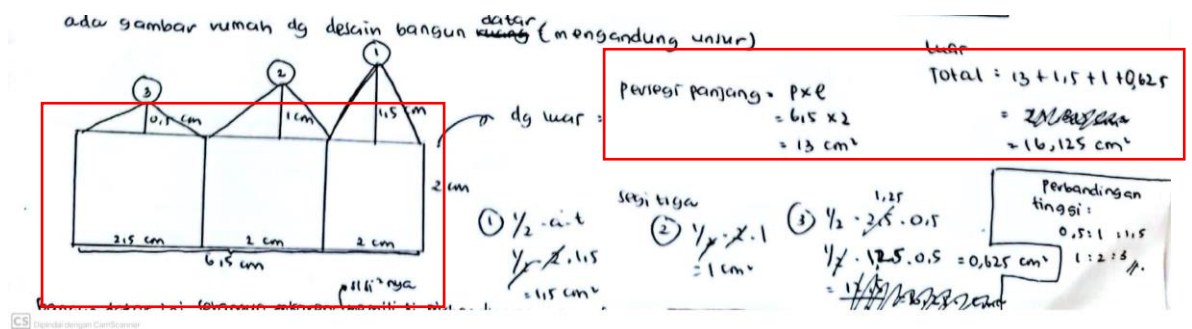 ada gambar rumah dg desain bangun datar (mengandung unsur)
3
2
1
0,5 cm
1 cm
1,5 cm
2 cm
2,5 cm
2 cm
2 cm
6,5 cm
dg luas =
Persegi panjang = p x l
= 6,5 x 2
= 13 cm²
Luas
Total = 13 + 1,5 + 1 + 0,625
= 16,125 cm²
segi tiga
1 1/2 . a . t
1/2 . 2 . 1,5
= 1,5 cm²
2 1/2 . 2 . 1
= 1 cm²
3 1/2 . 2,5 . 0,5
1,25
1/2 . 1,25 . 0,5 = 0,625 cm²
Perbandingan
tinggi :
0,5 : 1 : 1,5
1 : 2 : 3
sisi²nya
CS Dipindai dengan CamScanner